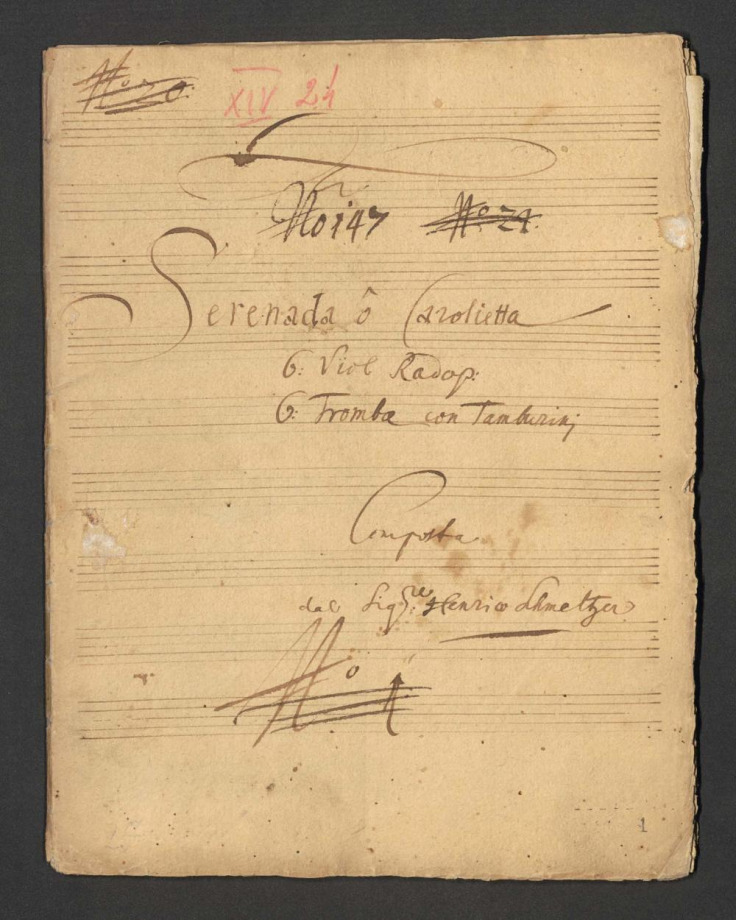 No 20
XIV 24
No 147 No: 24.
Serenada ô Carolietta
6: Viol Radop:
6: Trombæ con Tamburinj
Composta
dal Sigre: Henrico Schmeltzer
No 1
1